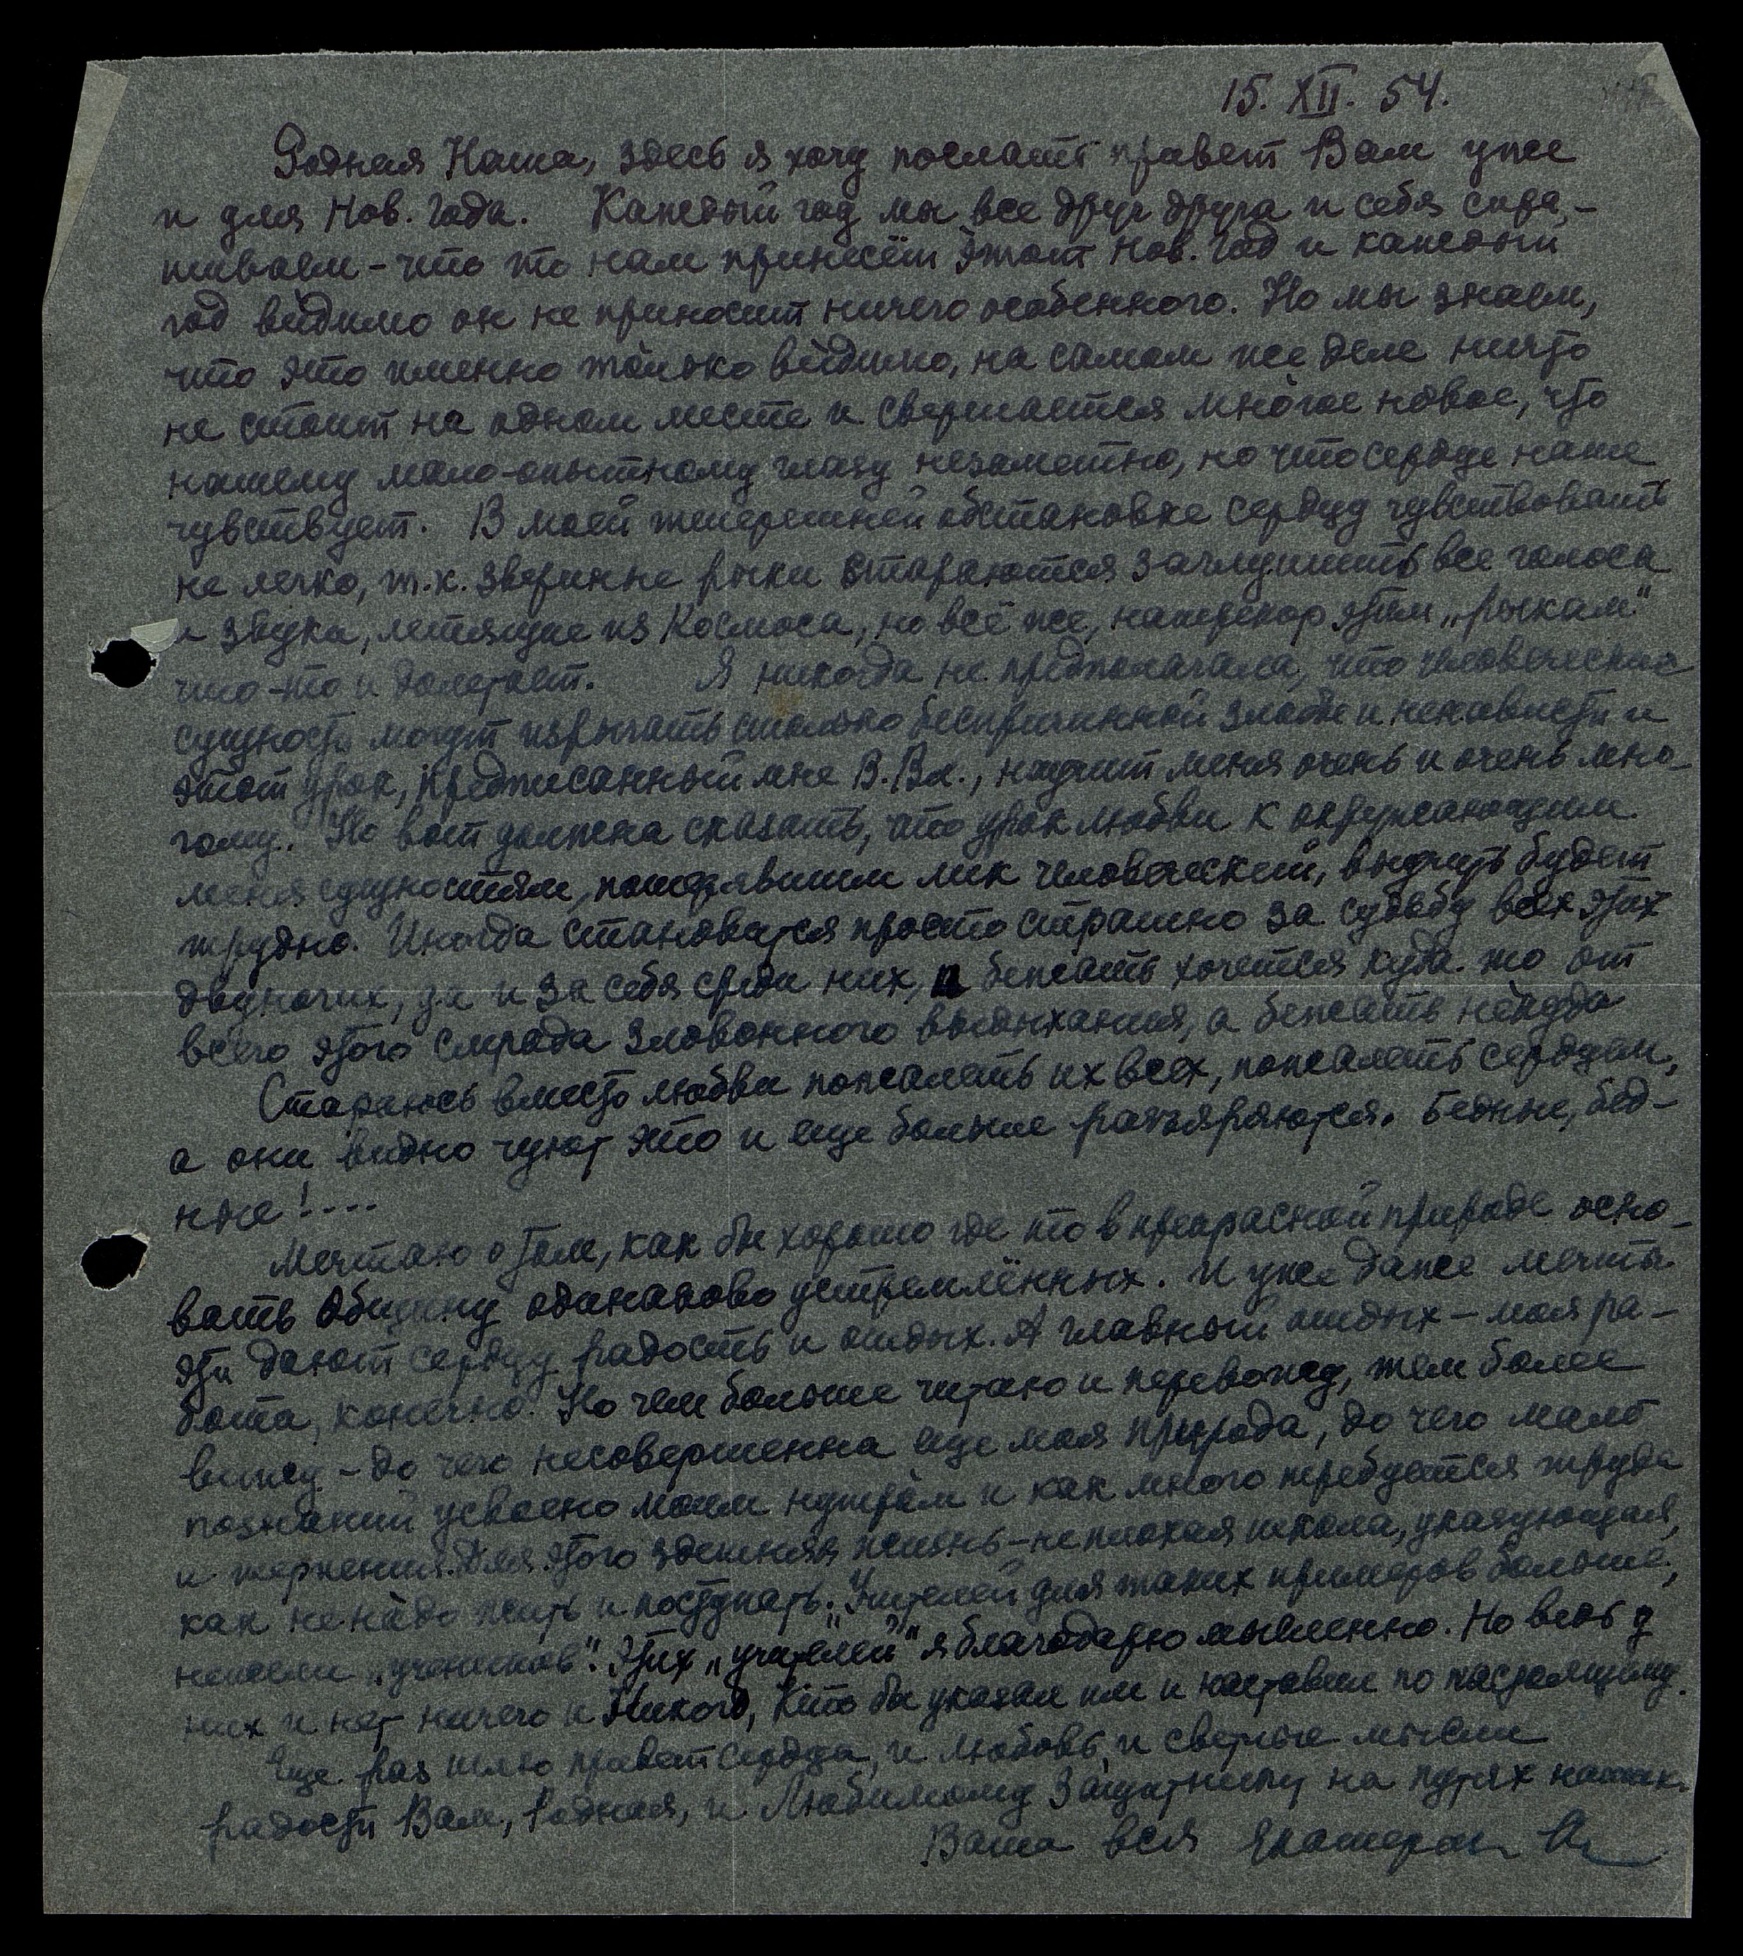 15. XII. 54.
Родная Наша, здесь я хочу послать привет Вам уже
и для Нов. Года. Каждый год мы все друг друга и себя спра-
шиваем - что то нам принесёт этот Нов. Год и каждый
год видимо он не приносит ничего особенного. Но мы знаем,
что это именно только видимо, на самом же деле ничто
не стоит на одном месте и свершается многое новое, что
нашему мало-опытному глазу незаметно, но что сердце наше
чувствует. В моей теперешней обстановке сердцу чувствовать
не легко, т.к. звериные рыки стараются заглушить все голоса
и звуки, летящие из Космоса, но всё же, наперекор этим „рыкам"
что-то и долетает. Я никогда не предполагала, что человеческие
сущности могут изрыгать столько беспричинной злобы и ненависти и
этот урок, предписанный мне В.Вл., научит меня очень и очень мно-
гому. Но вот должна сказать, что урок любви к окружающим
меня сущностям, потерявшим лик человеческий, выучить будет
трудно. Иногда становится просто страшно за судьбу всех этих
двуногих, да и за себя среди них, и бежать хочется куда-то от
всего этого смрада зловонного выдыхания, а бежать некуда
Стараюсь вместо любви пожалеть их всех, пожалеть сердцем,
а они видно чуют это и еще больше разъяряются. Бедные, бед-
ные!....
Мечтаю о том, как бы хорошо где то в прекрасной природе осно-
вать Общину одинаково устремлённых. И уже даже мечты
эти дают сердцу радость и отдых. А главный отдых - моя ра-
бота, конечно. Но чем больше читаю и перевожу, тем более
вижу - до чего несовершенна еще моя природа, до чего мало
познаний усвоено моим нутром и как много требуется труда
и терпения. Для этого здешняя жизнь - не плохая школа, указующая,
как не надо жить и поступать. Учителей для таких примеров больше,
нежели „учеников". Этих „учителей" я благодарю мысленно. Но ведь у
них и нет ничего и Никого, Кто бы указал им и наставил по настоящему.
Еще раз шлю привет сердца, и любовь, и светлые мысли
радости Вам, Родная, и Любимому Защитнику на путях наших.
Ваша вся